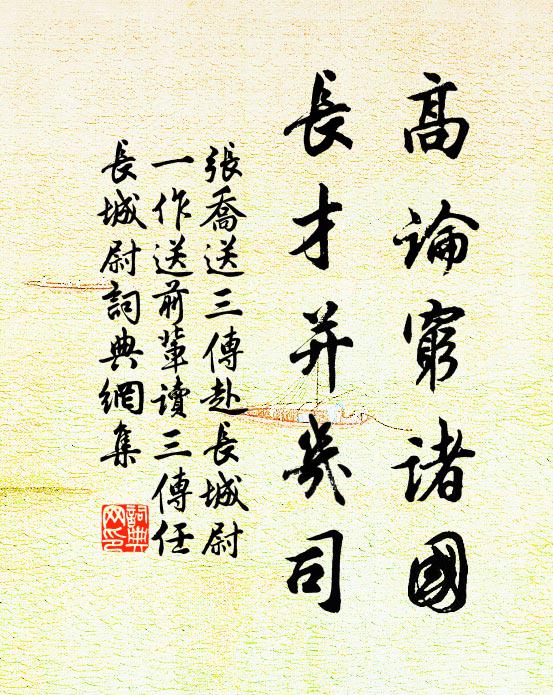 高論窮諸國
長才并幾司
張喬送三傳赴長城尉
一作送前輩讀三傳任
長城尉詞典網集
詞典网印